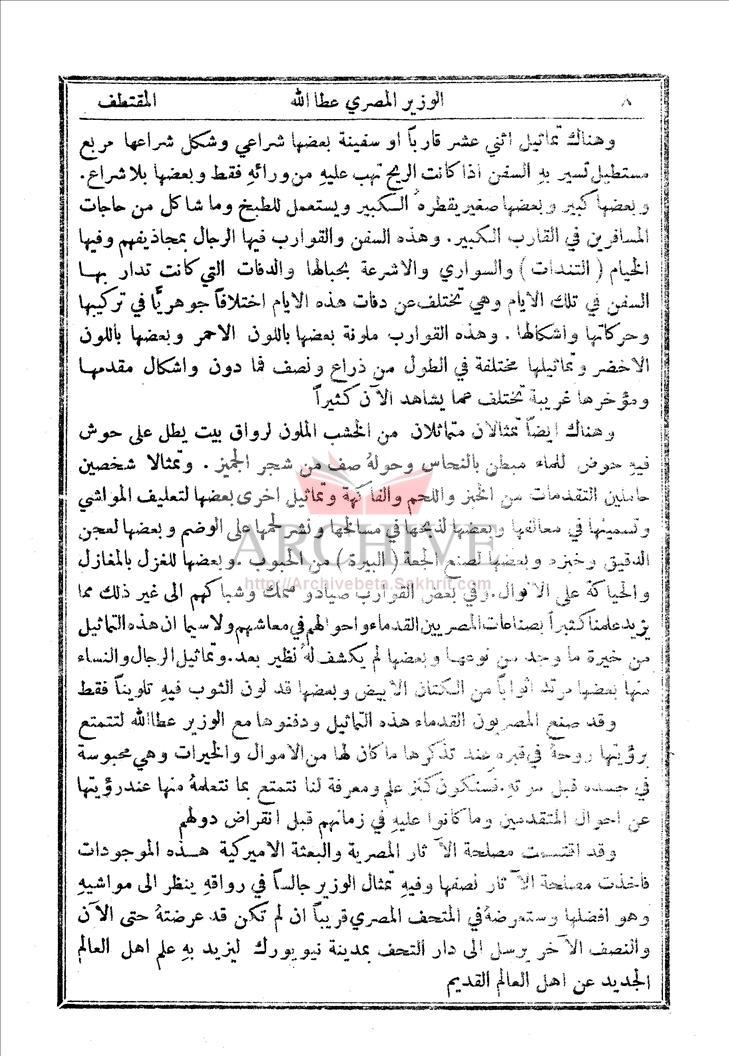 ٨ الوزير المصري عطا الله المقتطف
وهناك تماثيل اثني عشر قارباً او سفينة بعضها شراعي وشكل شراعها مربع
مستطيل تسير بهِ السفن اذا كانت الريح تهب عليهِ من ورائهِ فقط وبعضها بلا شراع.
وبعضها كبير وبعضها صغير يقطرهُ الكبير ويستعمل للطبخ وما شاكل من حاجات
المسافرين في القارب الكبير. وهذه السفن والقوارب فيها الرجال بمجاذيفهم وفيها
الخيام (التندات) والسواري والاشرعة بحبالها والدفات التي كانت تدار بها
السفن في تلك الايام وهي تختلف عن دفات هذه الايام اختلافاً جوهريًّا في تركيبها
وحركاتها واشكالها. وهذه القوارب ملونة بعضها باللون الاحمر وبعضها باللون
الاخضر وتماثيلها مختلفة في الطول من ذراع ونصف فما دون واشكال مقدمها
ومؤخرها غريبة تختلف عما يشاهد الآن كثيراً
وهناك ايضاً تمثالان متماثلان من الخشب الملون لرواق بيت يطل على حوش
فيهِ حوض للماء مبطن بالنحاس وحولهُ صف من شجر الجميز. وتمثالا شخصين
حاملين التقدمات من الخبز واللحم والفاكهة وتماثيل اخرى بعضها لتعليف المواشي
وتسمينها في معالفها وبعضها لذبحها في مسالخها ونشر لحمها على الوضم وبعضها لعجن
الدقيق وخبزه وبعضها لصنع الجعة (البيرة) من الحبوب. وبعضها للغزل بالمغازل
والحياكة على الانوال. وفي بعض القوارب صيادو سمك وشباكهم الى غير ذلك مما
يزيد علمنا كثيراً بصناعات المصريين القدماء واحوالهم في معاشهم ولا سيما ان هذه التماثيل
من خيرة ما وجد من نوعها وبعضها لم يكشف لهُ نظير بعد. وتماثيل الرجال والنساء
منها بعضها مرتد اثواباً من الكتان الابيض وبعضها قد لون الثوب فيهِ تلويناً فقط
وقد صنع المصريون القدماء هذه التماثيل ودفنوها مع الوزير عطا الله لتتمتع
برؤيتها روحهُ في قبره عند تذكرها ما كان لها من الاموال والخيرات وهي محبوسة
في جسده قبل موتهِ. فستكون كنز علم ومعرفة لنا نتمتع بما نتعلمهُ منها عند رؤيتها
عن احوال المتقدمين وما كانوا عليهِ في زمانهم قبل انقراض دولهم
وقد اقتسمت مصلحة الآثار المصرية والبعثة الاميركية هذه الموجودات
فاخذت مصلحة الآثار نصفها وفيهِ تمثال الوزير جالساً في رواقهِ ينظر الى مواشيهِ
وهو افضلها وستعرضهُ في المتحف المصري قريباً ان لم تكن قد عرضتهُ حتى الآن
والنصف الآخر يرسل الى دار التحف بمدينة نيويورك ليزيد بهِ علم اهل العالم
الجديد عن اهل العالم القديم
ARCHIVE
http://Archivebeta.Sakhrit.com